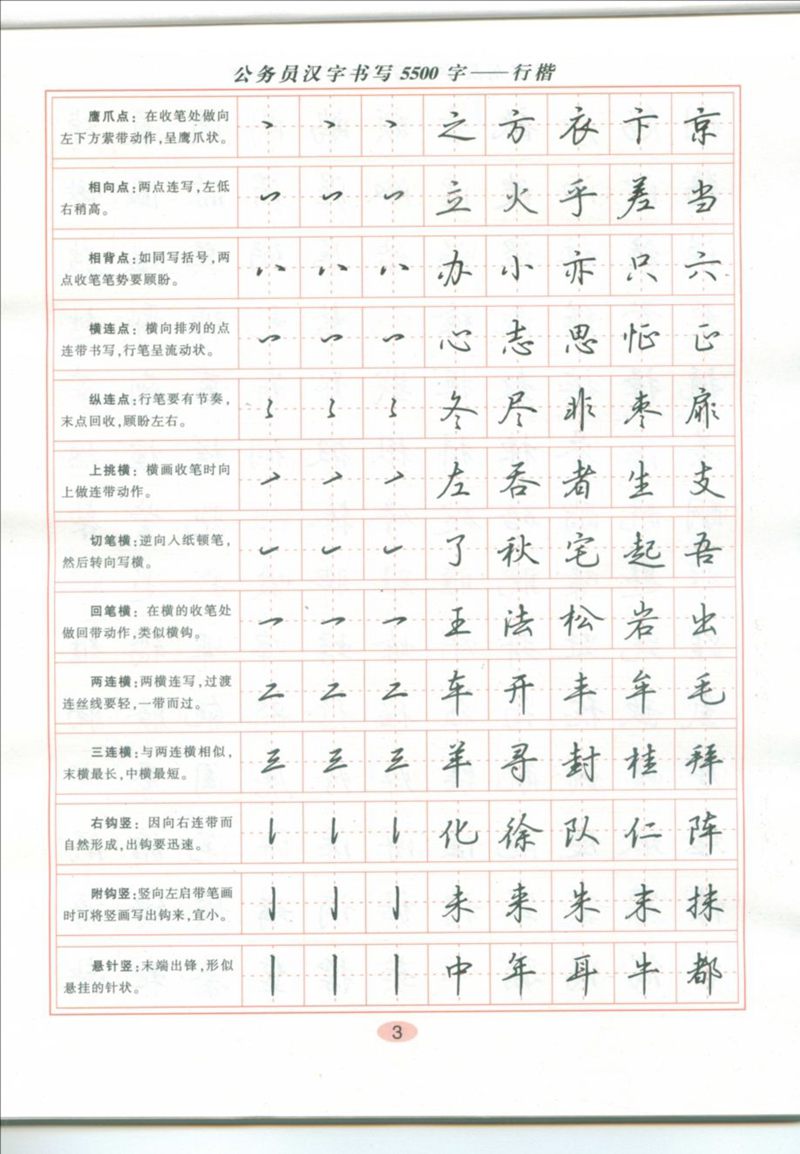 公务员汉字书写5500字——行楷
鹰爪点：在收笔处做向
左下方萦带动作，呈鹰爪状。
之方衣卞京
相向点：两点连写，左低
右稍高。
立火乎差当
相背点：如同写括号，两
点收笔笔势要顾盼。
办小亦只六
横连点：横向排列的点
连带书写，行笔呈流动状。
心志思怔正
纵连点：行笔要有节奏，
末点回收，顾盼左右。
冬尽非枣扉
上挑横：横画收笔时向
上做连带动作。
左吞者生支
切笔横：逆向入纸顿笔，
然后转向写横。
了秋宅起吾
回笔横：在横的收笔处
做回带动作，类似横钩。
王法松岩出
两连横：两横连写，过渡
连丝线要轻，一带而过。
车开丰牟毛
三连横：与两连横相似，
末横最长，中横最短。
羊寻封桂拜
右钩竖：因向右连带而
自然形成，出钩要迅速。
化徐队仁阵
附钩竖：竖向左启带笔画
时可将竖画写出钩来，宜小。
未来朱末抹
悬针竖：末端出锋，形似
悬挂的针状。
中年耳牛都
3